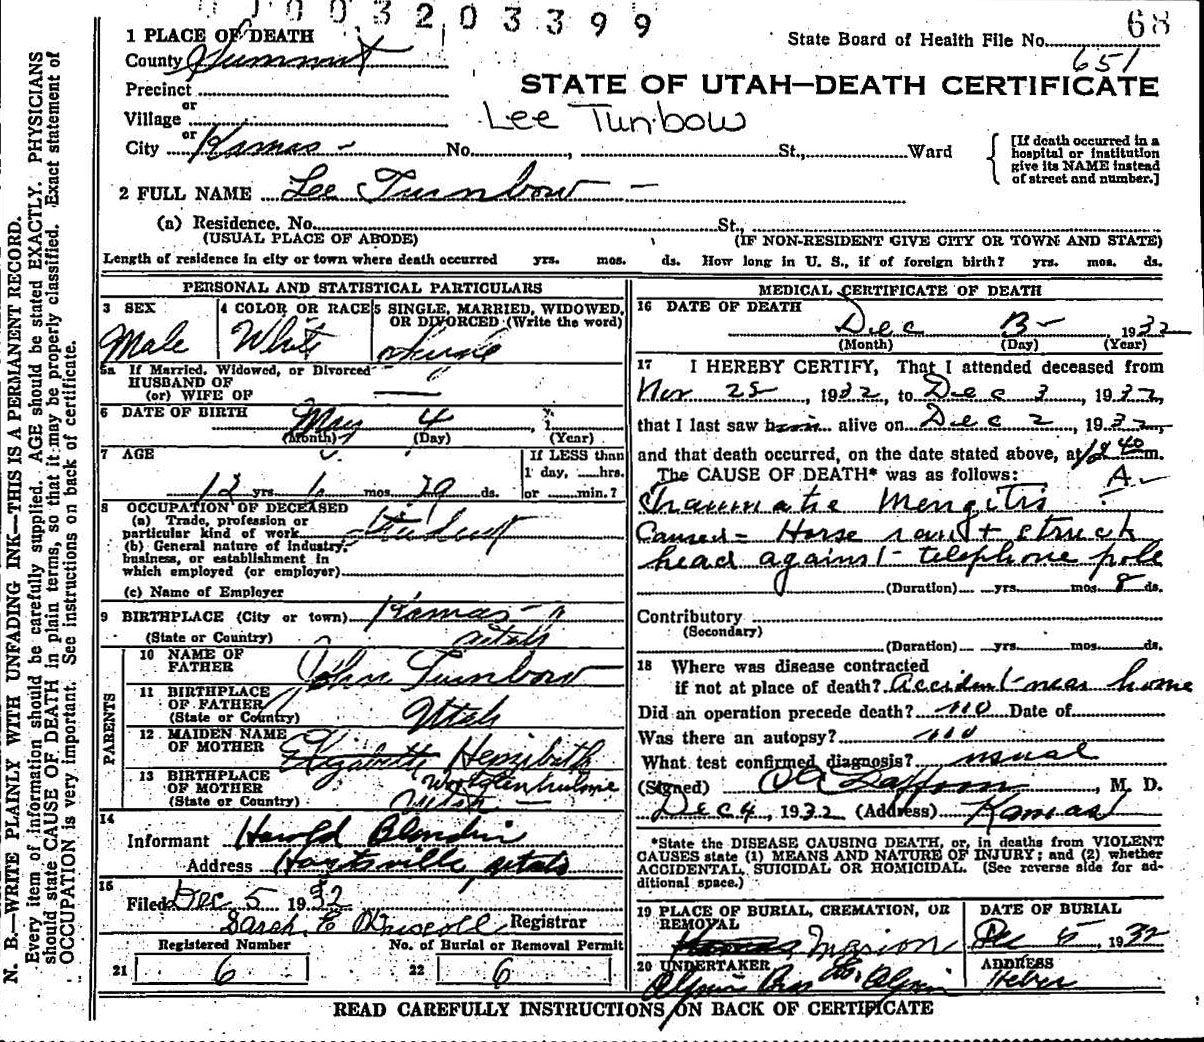 003203399
68
State Board of Health File No.
651
1 PLACE OF DEATH
County Summit
STATE OF UTAH—DEATH CERTIFICATE
Precinct
or
Village
Lee Turnbow
or
City Kamas - No. , St., Ward
[If death occurred in a hospital or institution give its NAME instead of street and number.]
2 FULL NAME Lee Turnbow —
(a) Residence. No. St.,
(USUAL PLACE OF ABODE) (IF NON-RESIDENT GIVE CITY OR TOWN AND STATE)
Length of residence in city or town where death occurred yrs. mos. ds. How long in U. S., if of foreign birth? yrs. mos. ds.
PERSONAL AND STATISTICAL PARTICULARS
3 SEX
Male
4 COLOR OR RACE
White
5 SINGLE, MARRIED, WIDOWED, OR DIVORCED (Write the word)
Single
5a If Married, Widowed, or Divorced
HUSBAND OF
(or) WIFE OF
6 DATE OF BIRTH May 4
(Month) (Day) (Year)
7 AGE
12 yrs 6 mos 29 ds.
If LESS than
1 day, hrs.
or min.?
8 OCCUPATION OF DECEASED
(a) Trade, profession or
particular kind of work Student
(b) General nature of industry,
business, or establishment in
which employed (or employer)
(c) Name of Employer
9 BIRTHPLACE (City or town) Kamas - "
(State or Country) Utah
PARENTS
10 NAME OF
FATHER John Turnbow
11 BIRTHPLACE
OF FATHER
(State or Country) Utah
12 MAIDEN NAME
OF MOTHER Elizabeth
13 BIRTHPLACE
OF MOTHER
(State or Country) Utah —
14
Informant Harold
Address Hoytsville, Utah
15
Filed Dec 5 1932
Sarah E O'Driscoll Registrar
Registered Number No. of Burial or Removal Permit
21 6 22 6
MEDICAL CERTIFICATE OF DEATH
16 DATE OF DEATH
Dec 3 - 1932
(Month) (Day) (Year)
17 I HEREBY CERTIFY, That I attended deceased from
Nov 25, 1932, to Dec 3, 1932,
that I last saw him alive on Dec 2, 1932,
and that death occurred, on the date stated above, at 12 40 m.
The CAUSE OF DEATH* was as follows: A.
Traumatic Mengitis
Caused = Horse ran + struck
head against - telephone pole
(Duration) yrs. mos 8 ds.
Contributory
(Secondary)
(Duration) yrs. mos. ds.
18 Where was disease contracted
if not at place of death? Accident - near home
Did an operation precede death? no Date of
Was there an autopsy? no
What test confirmed diagnosis? usual
(Signed) , M. D.
Dec 4, 1932 (Address) Kamas
*State the DISEASE CAUSING DEATH, or, in deaths from VIOLENT
CAUSES state (1) MEANS AND NATURE OF INJURY; and (2) whether
ACCIDENTAL, SUICIDAL OR HOMICIDAL. (See reverse side for ad-
ditional space.)
19 PLACE OF BURIAL, CREMATION, OR
REMOVAL
Marion
DATE OF BURIAL
Dec 5, 1932
20 UNDERTAKER
ADDRESS
Heber
READ CAREFULLY INSTRUCTIONS ON BACK OF CERTIFICATE
N. B.—WRITE PLAINLY WITH UNFADING INK—THIS IS A PERMANENT RECORD.
Every item of information should be carefully supplied. AGE should be stated EXACTLY. PHYSICIANS
should state CAUSE OF DEATH in plain terms, so that it may be properly classified. Exact statement of
OCCUPATION is very important. See instructions on back of certificate.